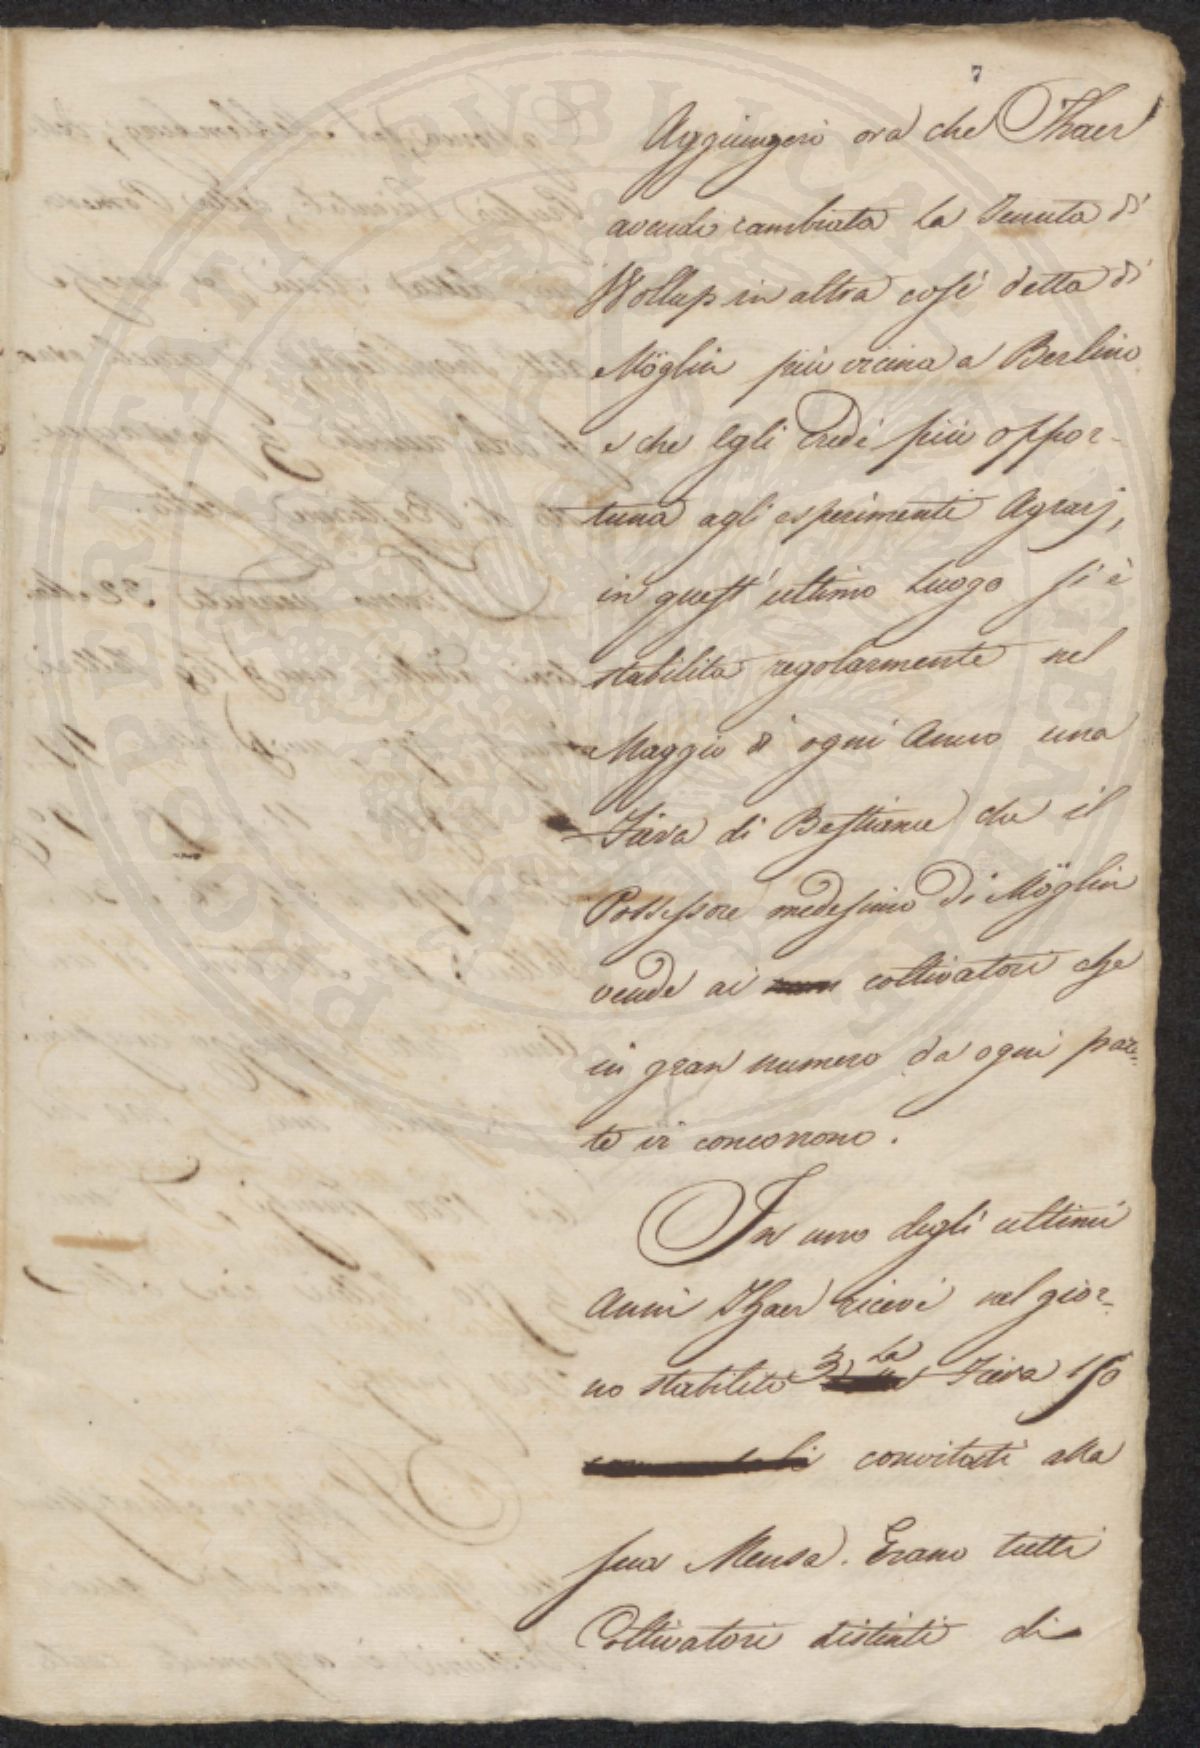 7
Aggiungerò ora che Thaer
avendo cambiata la Tenuta di
Wollup in altra così detta di
Möglin più vicina a Berlino
e che egli credè più oppor-
tuna agli esperimenti Agrarj,
in quest'ultimo Luogo si è
stabilita regolarmente nel
Maggio di ogni Anno una
Fiera di Bestiame che il
Possessore medesimo di Möglin
vende ai coltivatori che
in gran numero da ogni par-
te vi concorrono.
In uno degli ultimi
Anni Thaer ricevè nel gior-
no stabilito La Fiera 150
convitati alla
sua Mensa. Erano tutti
Coltivatori distinti di